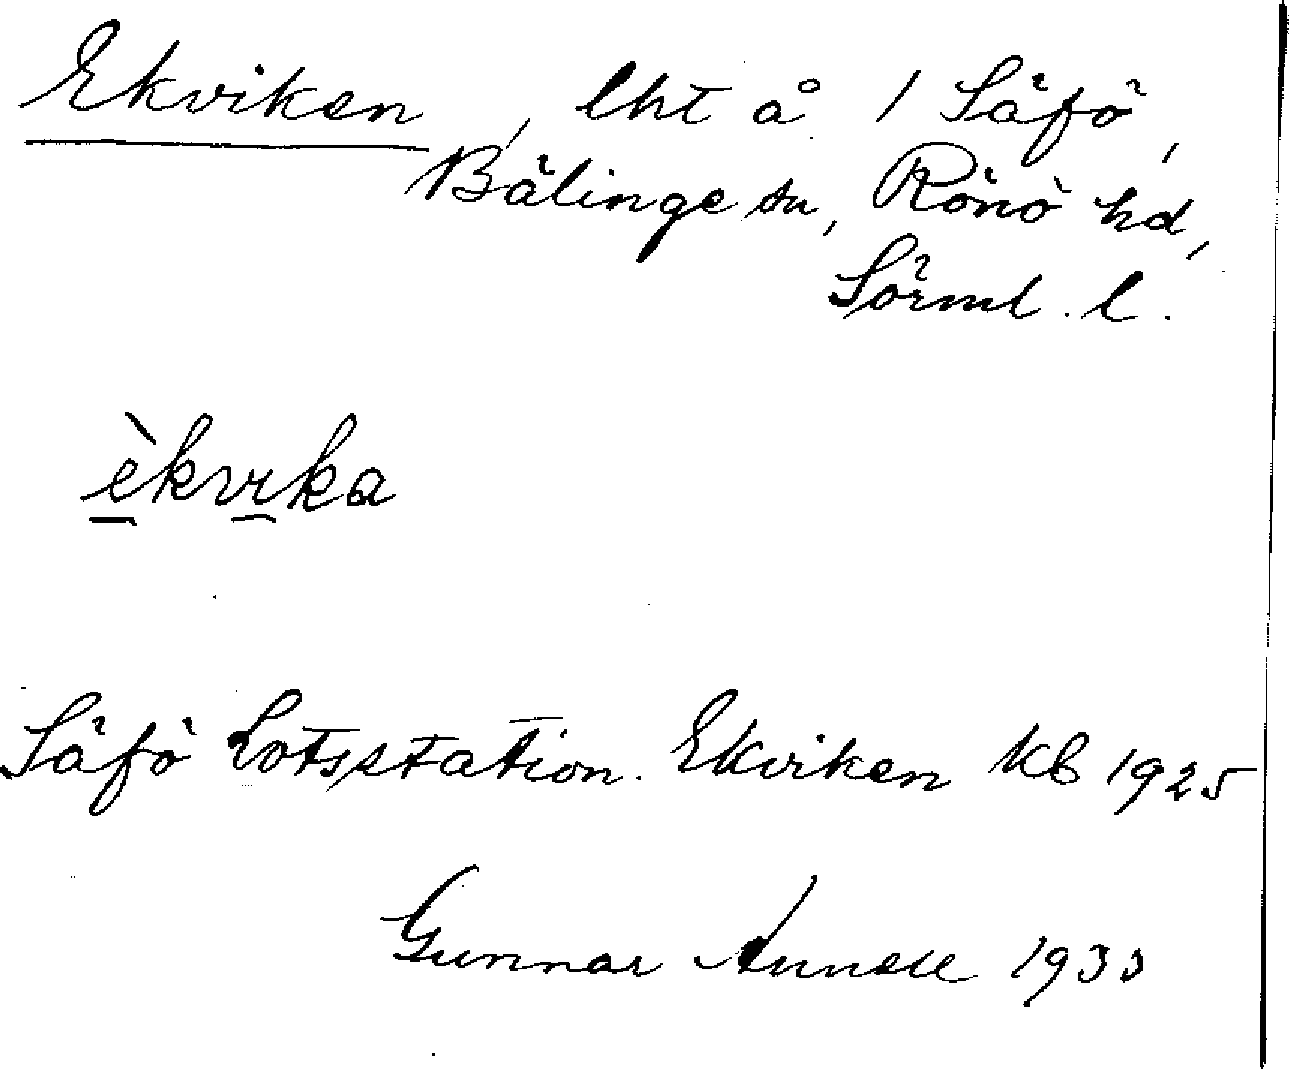 Ekviken, lht å 1 Säfö,
Bälinge sn, Rönö hd,
Sörml. l.
èkvika
Säfö Lotsstation. Ekviken kb 1925
Gunnar 1933